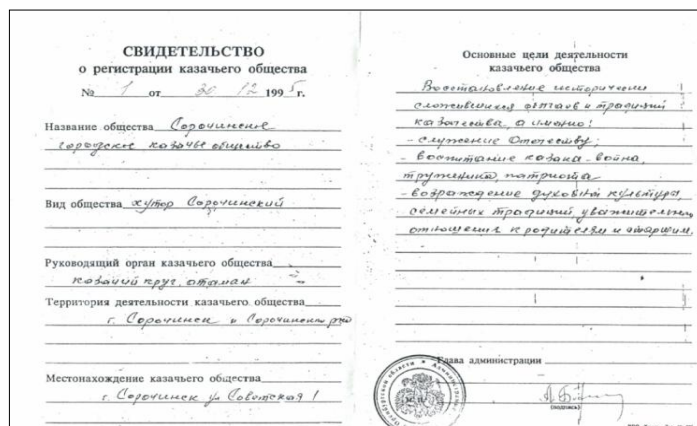 СВИДЕТЕЛЬСТВО
о регистрации казачьего общества
№ 1 от 30 12 1995 г.
Название общества Сорочинское
городское казачье общество
Вид общества хутор Сорочинский
Руководящий орган казачьего общества
казачий круг, атаман
Территория деятельности казачьего общества
г. Сорочинск и Сорочинский
Местонахождение казачьего общества
г. Сорочинск ул Советская 1
Основные цели деятельности
казачьего общества
Восстановление исторически
сложившихся и традиций
казачества, а именно:
- служение Отечеству;
- воспитание казака-воина,
труженика, патриота
- возрождение духовной культуры,
семейных традиций, уважительных
отношений к родителям и старшим.
Глава администрации
(подпись)
Оренбургской области * Администрация